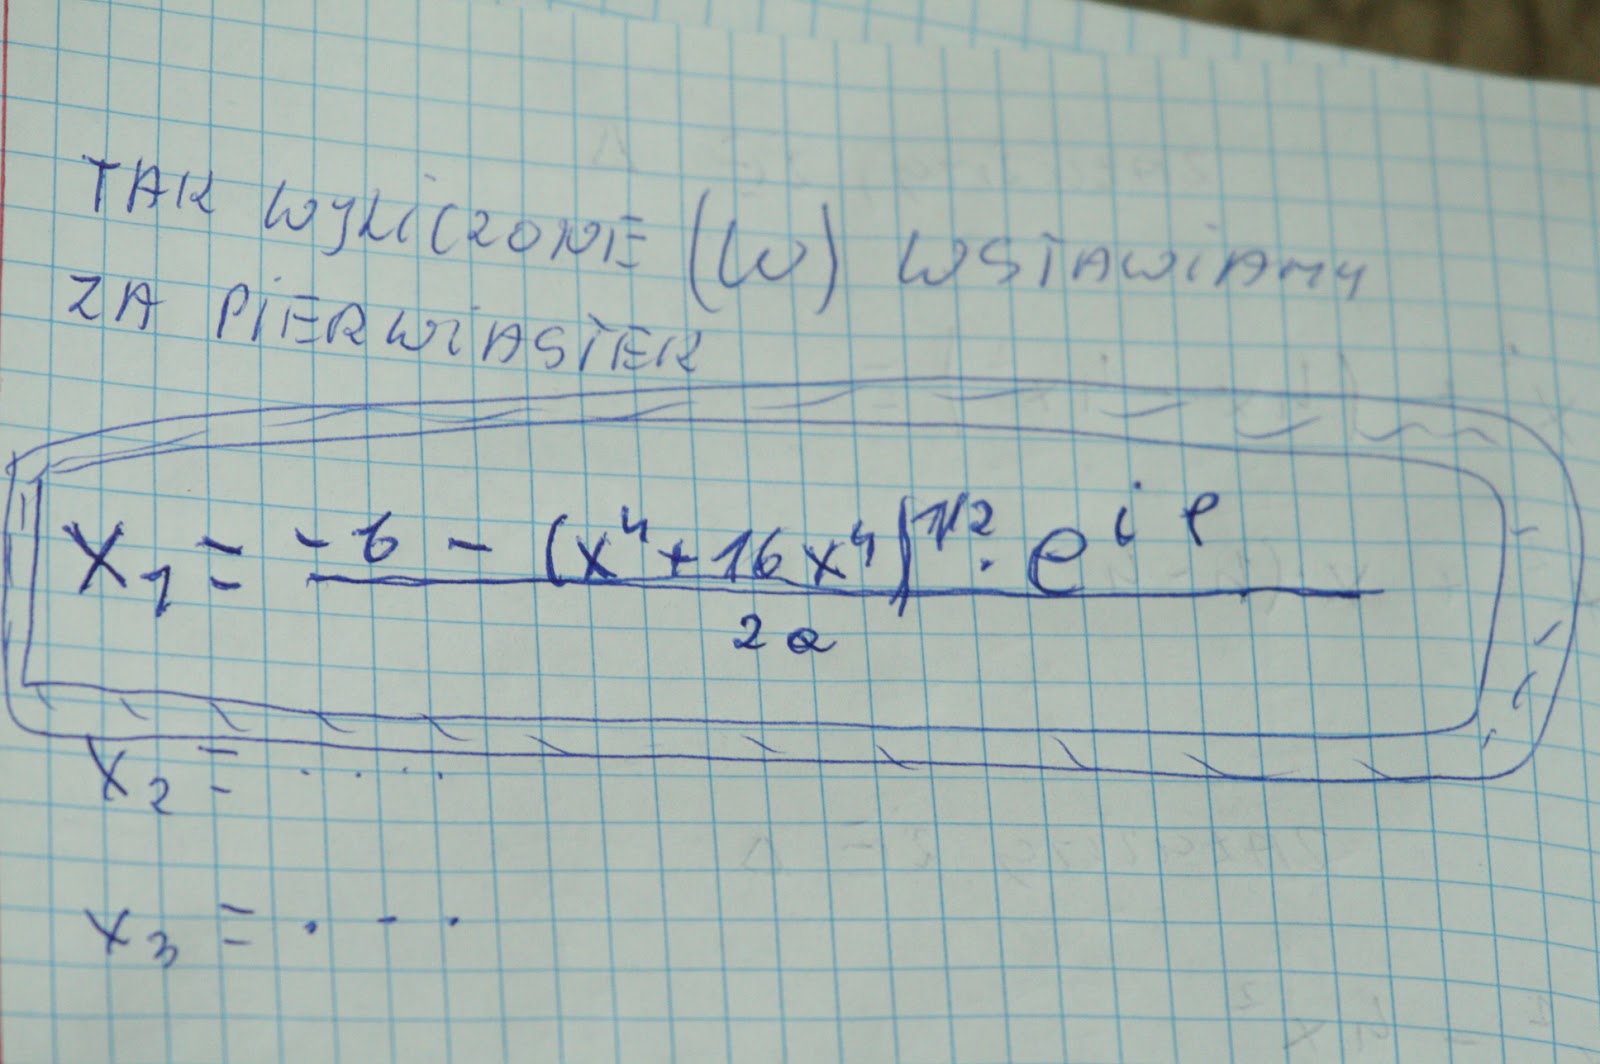 TAK WYLICZONE (W) WSTAWIAMY
ZA PIERWIASTEK
X₁ = -b - (x⁴ + 16x⁴)^1/2 · e^i φ
2a
X₂ = . . . .
X₃ = . - .